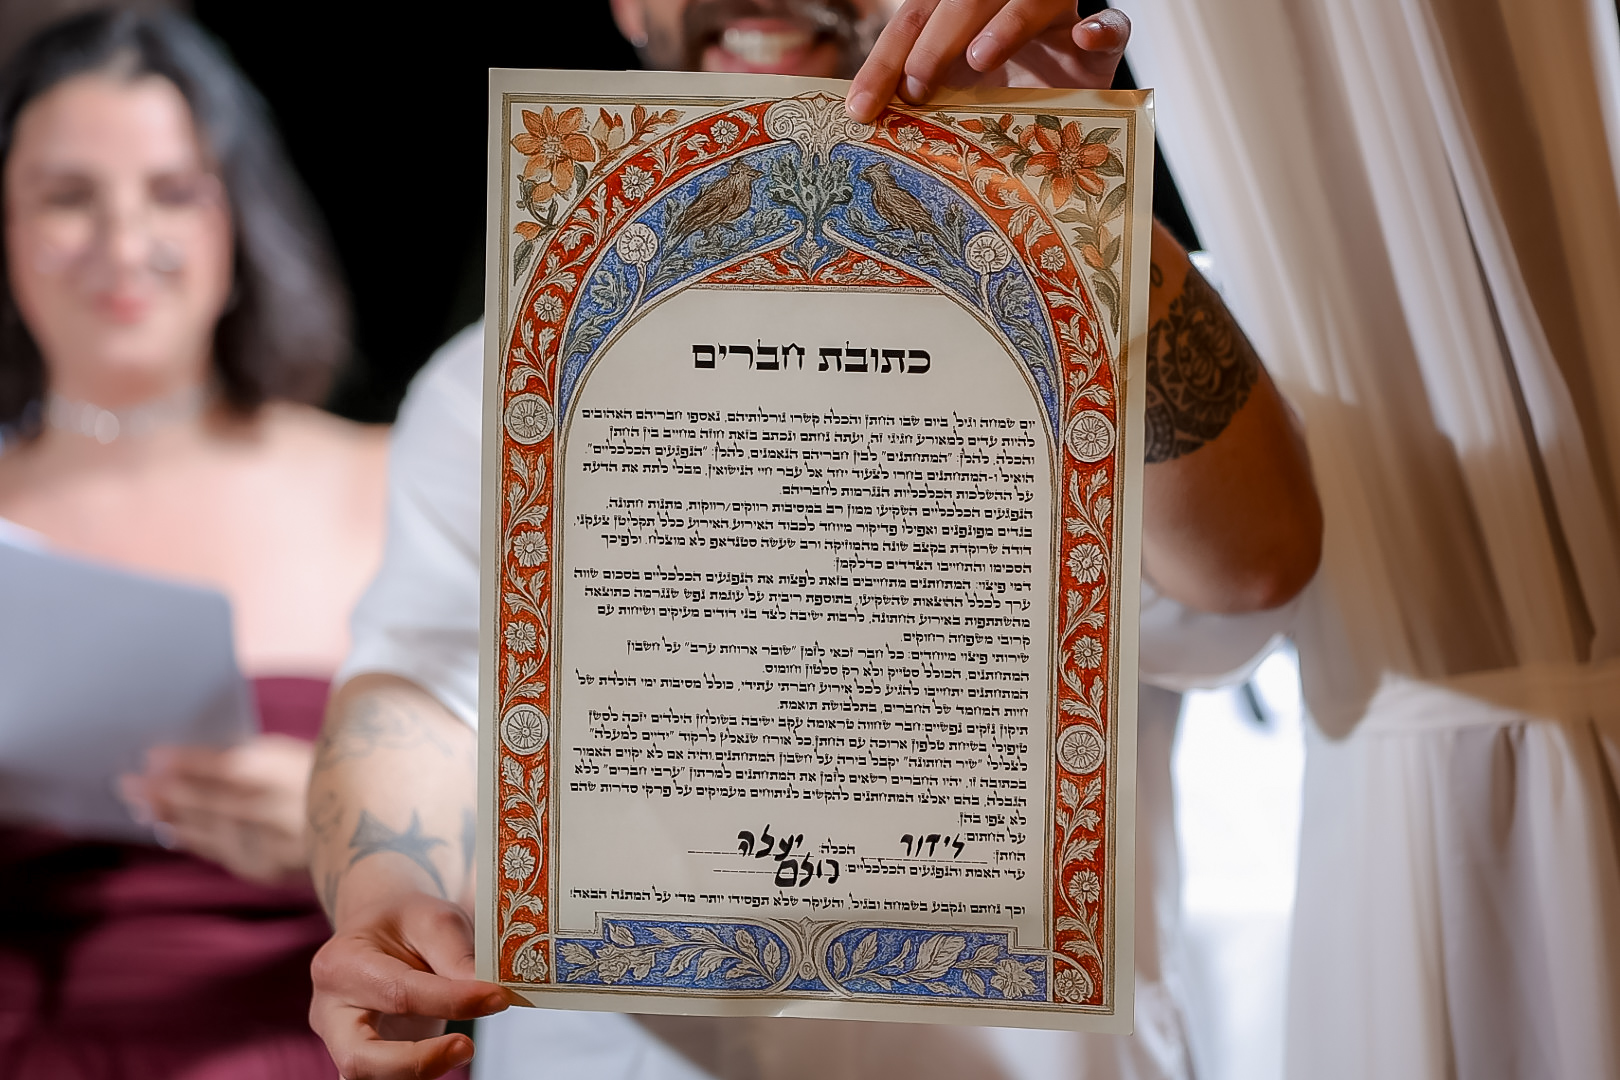 כתובת חברים
יום שמחה וגיל, ביום שבו החתן והכלה קשרו גורלותיהם, נאספו חבריהם האהובים
להיות עדים למאורע חגיגי זה, ועתה נחתם ונכתב בזאת חוזה מחייב בין החתן
והכלה, להלן: "המתחתנים" לבין חבריהם הנאמנים, להלן: "הנפגעים הכלכליים".
הואיל ו-המתחתנים בחרו לצעוד יחד אל עבר חיי הנישואין, מבלי לתת את הדעת
על ההשלכות הכלכליות הנגרמות לחבריהם.
הנפגעים הכלכליים השקיעו ממון רב במסיבות רווקים/רווקות, מתנות חתונה,
בגדים מפונפנים ואפילו פדיקור מיוחד לכבוד האירוע.האירוע כלל תקליטן צעקני,
דודה שרוקדת בקצב שונה מהמוזיקה ורב שעשה סטנדאפ לא מוצלח. ולפיכך
הסכימו והתחייבו הצדדים כדלקמן:
דמי פיצוי: המתחתנים מתחייבים בזאת לפצות את הנפגעים הכלכליים בסכום שווה
ערך לכלל ההוצאות שהשקיעו, בתוספת ריבית על עוגמת נפש שנגרמה כתוצאה
מהשתתפות באירוע החתונה, לרבות ישיבה לצד בני דודים מעיקים ושיחות עם
קרובי משפחה רחוקים.
שירותי פיצוי מיוחדים: כל חבר זכאי לזמן "שובר ארוחת ערב" על חשבון
המתחתנים, הכולל סטייק ולא רק סלטון וחומוס.
המתחתנים יתחייבו להגיע לכל אירוע חברתי עתידי, כולל מסיבות ימי הולדת של
חיות המחמד של החברים, בתלבושת תואמת.
תיקון נזקים נפשיים:חבר שחווה טראומה עקב ישיבה בשולחן הילדים יזכה לסשן
טיפולי בשיחת טלפון ארוכה עם החתן.כל אורח שנאלץ לרקוד "ידיים למעלה"
לצלילי "שיר החתונה" יקבל בירה על חשבון המתחתנים.והיה אם לא יקוים האמור
בכתובה זו, יהיו החברים רשאים לזמן את המתחתנים למרתון "ערבי חברים" ללא
הגבלה, בהם יאלצו המתחתנים להקשיב לניתוחים מעמיקים על פרקי סדרות שהם
לא צפו בהן.
על החתום:
החתן: לידור הכלה: יעלה
עדי האמת והנפגעים הכלכליים: כולם
וכך נחתם ונקבע בשמחה ובגיל, והעיקר שלא תפסידו יותר מדי על המתנה הבאה!